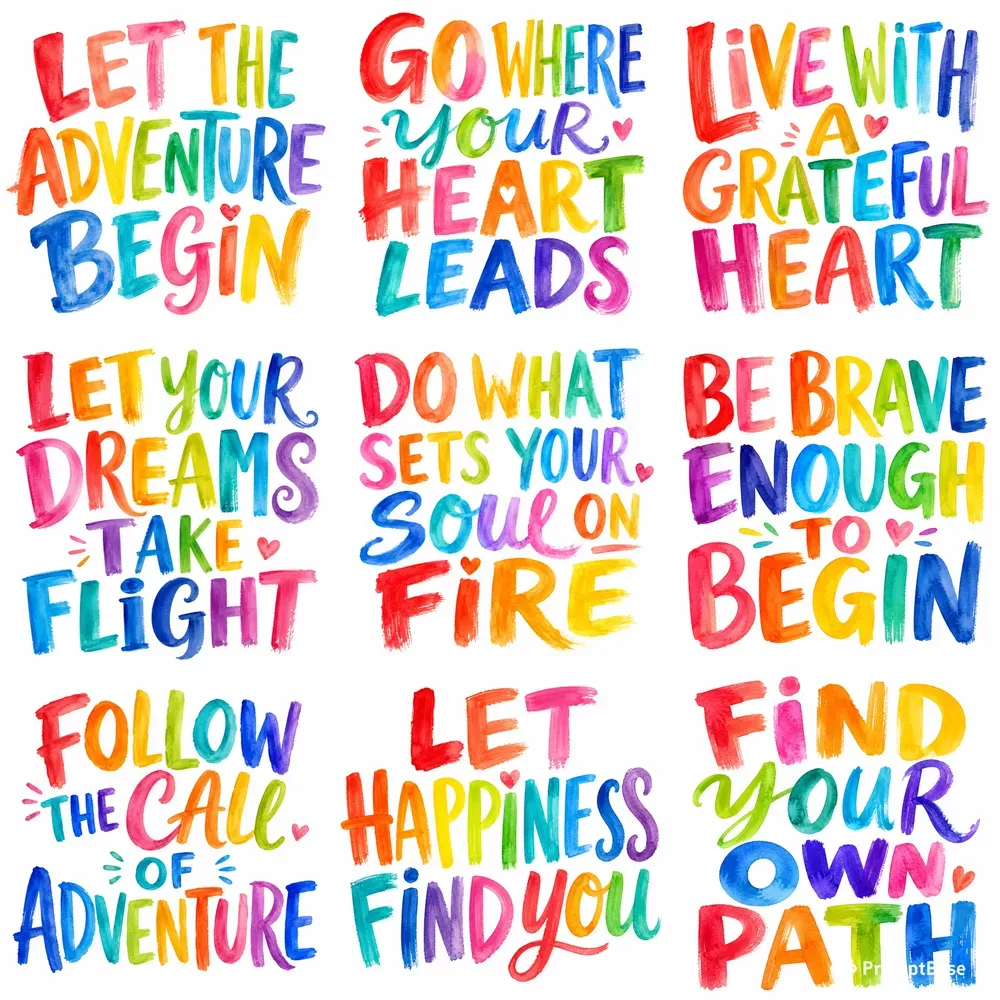 LET THE
ADVENTURE
BEGIN
GO WHERE
YOUR
HEART
LEADS
LiVE WiTH
A
GRATEFUL
HEART
LET YOUR
DREAMS
TAKE
FLiGHT
DO WHAT
SETS YOUR
SOUL ON
FiRE
BE BRAVE
ENOUGH
TO
BEGIN
FOLLOW
THE CALL
OF
ADVENTURE
LET
HAPPiNESS
FiND YOU
FiND
YOUR
OWN
PATH
PromptBase